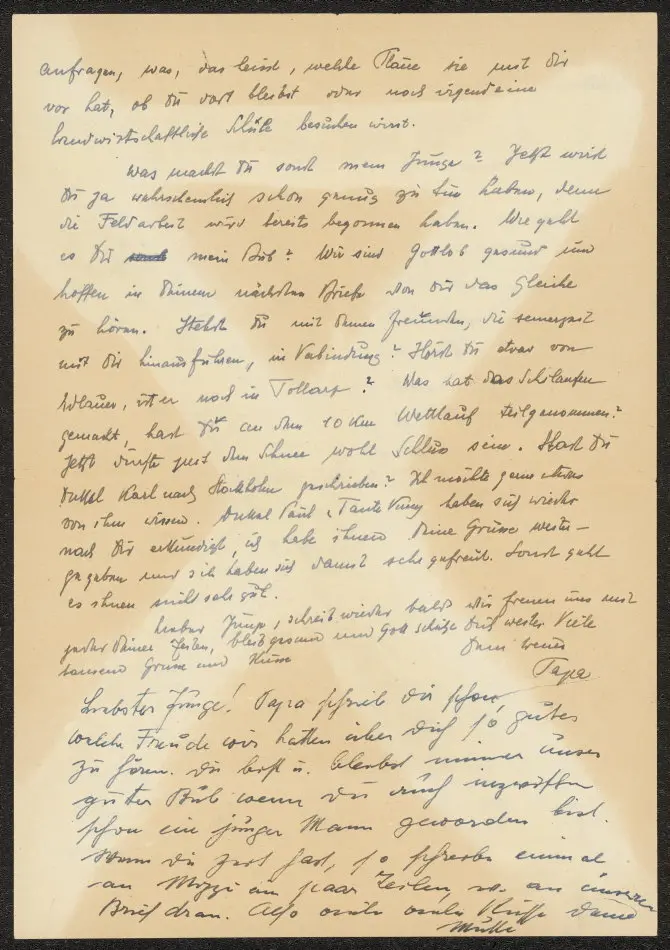 anfragen, was, das heisst, welche Pläne sie mit Dir
vor hat, ob Du dort bleibst oder noch irgendeine
landwirtschaftliche Schule besuchen wirst.
Was machst Du sonst mein Junge? Jetzt wirst
Du ja wahrscheinlich schon genug zu tun haben, denn
die Feldarbeit wird bereits begonnen haben. Wie geht
es Dir mein Bub? Wir sind Gottlob gesund und
hoffen in Deinem nächsten Briefe von Dir das Gleiche
zu hören. Stehst Du mit Deinen Freunden, die seinerzeit
mit Dir hinausfuhren, in Verbindung? Hörst Du etwas von
ist er noch in Tollarp? Was hat das Schilaufen
gemacht, hast Du an dem 10 Km Wettlauf teilgenommen?
Jetzt dürfte mit dem Schnee wohl Schluss sein. Hast Du
Onkel Karl nach Stockholm geschrieben? Ich möchte gerne etwas
von ihm wissen. Onkel Paul u Tante haben sich wieder
nach Dir erkundigt, ich habe ihnen Deine Grüsse weiter-
gegeben und sie haben sich damit sehr gefreut. Sonst geht
es ihnen nicht sehr gut.
Lieber Junge, schreib wieder bald, wir freuen uns mit
jeder Deiner Zeilen, bleib gesund und Gott schütze Dich weiter. Viele
tausend Grüsse und Küsse Dein treuer
Papa
Liebster Junge! Papa schrieb Dir schon
welche Freude wir hatten über Dich so gutes
zu hören. Du bist u. bleibst immer unser
guter Bub wenn Du auch inzwischen
schon ein junger Mann geworden bist.
Wenn Du Zeit hast, so schreibe einmal
an ein paar Zeilen, an unseren
Brief dran. Also viele viele Küsse Deine
Mutti